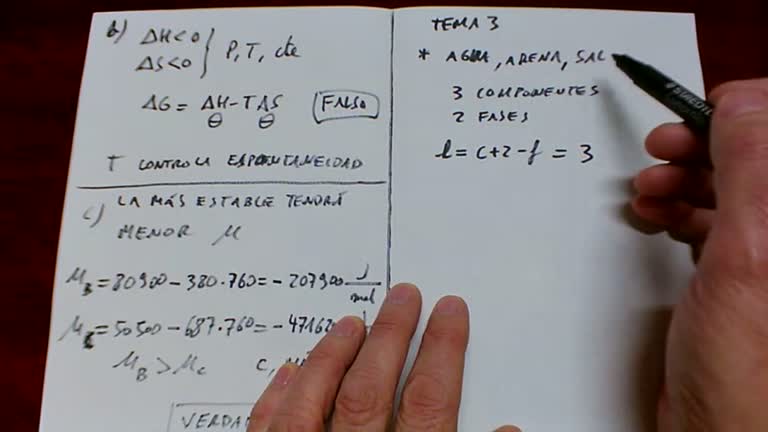 b) ΔH<0
ΔS<0 } P, T, cte
ΔG = ΔH-TΔS FALSO
⊖ ⊖
T CONTROLA ESPONTANEIDAD
c) LA MÁS ESTABLE TENDRÁ
MENOR μ
μB = 80900-380·760=-207900 J/mol
μC = 50500-687·760=-47162
μB > μC C,
VERDA
TEMA 3
* AGUA, ARENA, SAL
3 COMPONENTES
2 FASES
l = c+2-f = 3